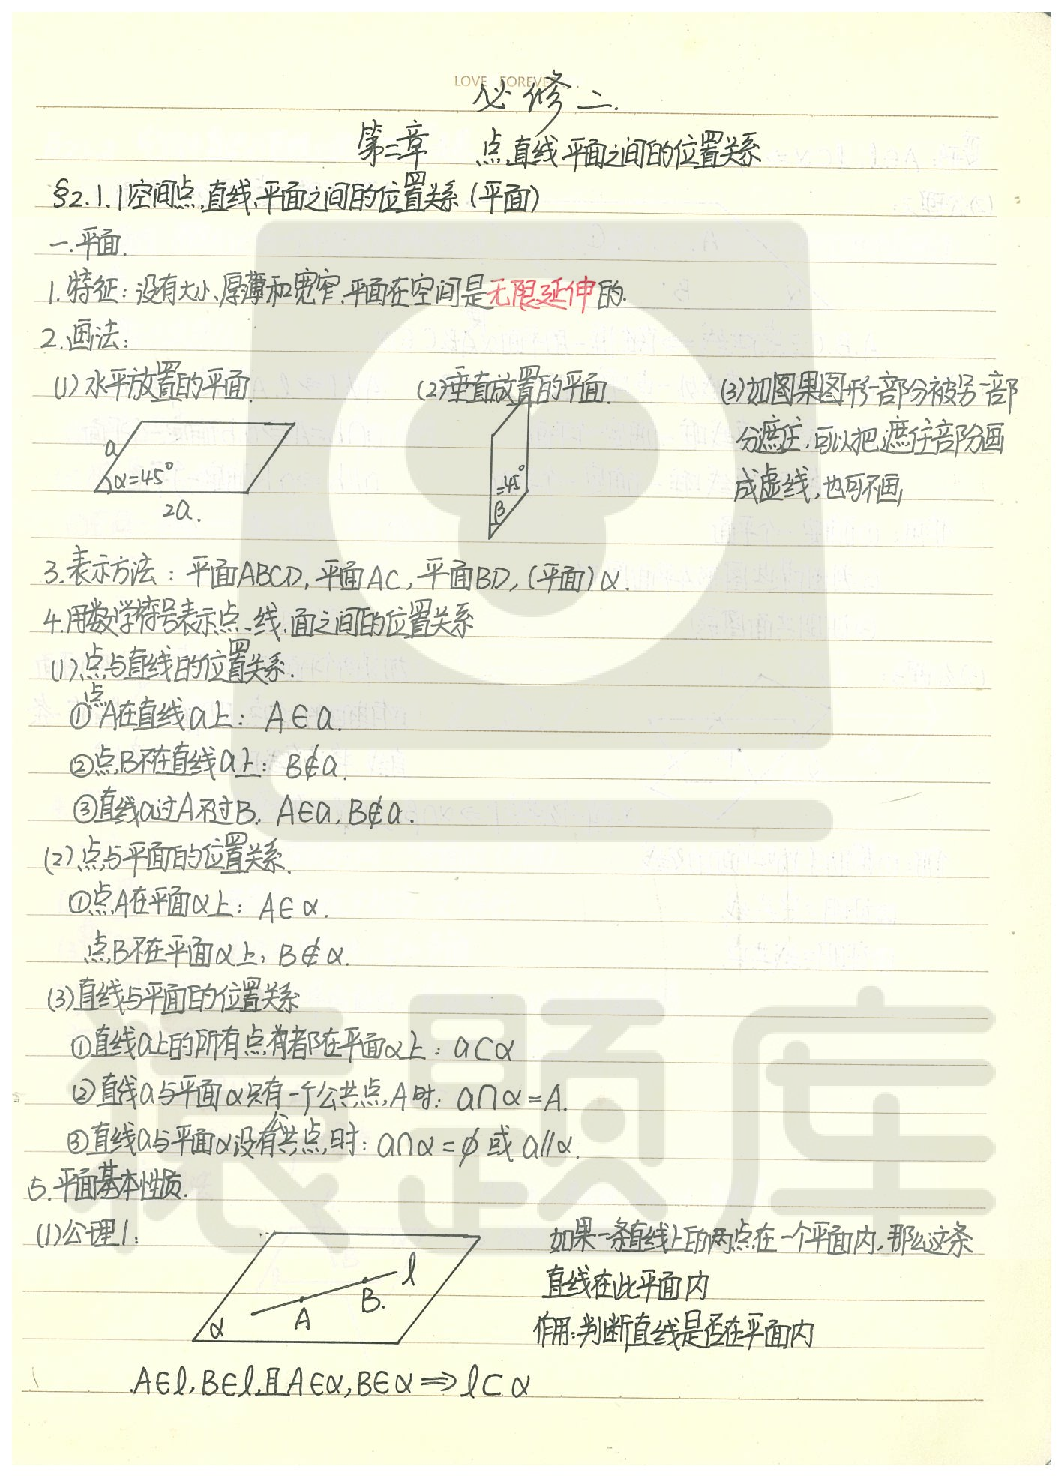 LOVE FOREVER
必修二.
第二章 点、直线、平面之间的位置关系
§2.1.1空间点、直线、平面之间的位置关系(平面)
一.平面.
1.特征:没有大小、厚薄和宽窄,平面在空间是无限延伸的.
2.画法:
(1)水平放置的平面.
(2)垂直放置的平面.
(3)如图果图形一部分被另一部
分遮住,可以把遮住部分画
成虚线,也可不画
a
α=45°
2a.
=45°
β
3.表示方法:平面ABCD,平面AC,平面BD,(平面)α.
4.用数学符号表示点、线、面之间的位置关系
(1)点与直线的位置关系.
①点A在直线a上: A∈a.
②点B不在直线a上: B∉a.
③直线a过A不过B, A∈a,B∉a.
(2)点与平面的位置关系.
①点A在平面α上: A∈α.
点B不在平面α上, B∉α.
(3)直线与平面的位置关系
①直线a上的所有点都在平面α上: a⊂α
②直线a与平面α只有一个公共点A时: a∩α=A.
③直线a与平面α没有公共点时: a∩α=∅或a//α.
5.平面基本性质.
(1)公理1:
如果一条直线上的两点在一个平面内,那么这条
直线在此平面内
作用:判断直线是否在平面内
l
A
B.
α
A∈l,B∈l,且A∈α,B∈α⇒l⊂α
猿题库